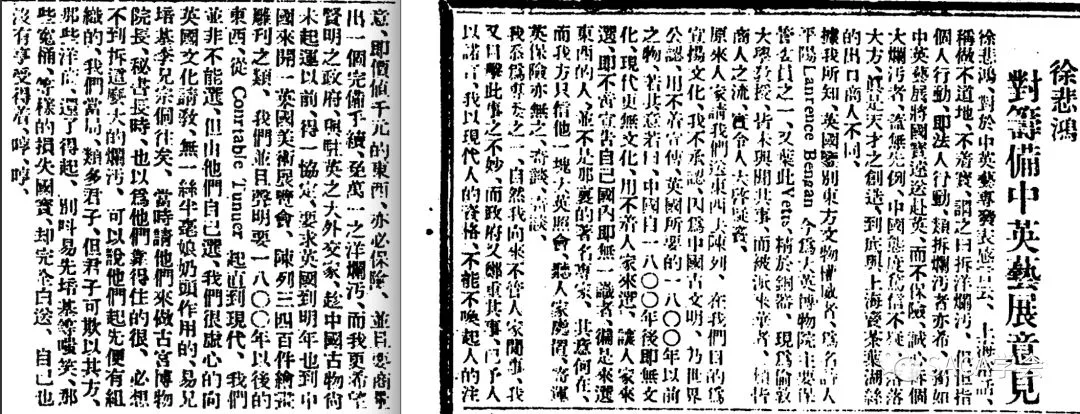 徐悲鴻
對籌備中英藝展意見
徐悲鴻、對於中英藝專發表感言云、上海俗話、
稱做不道地、不着實、謂之曰拆洋爛污、但坦指
個人行動、卽法人行動、類拆爛污者亦希、獨如
中英藝展將國寶運送赴英、而不保險、誠心拆
大爛污者、蓋無先例、中國態度爲信不疑、落落
大方、眞是天才之創造、到底與上海賣茶葉湖絲
的出口商人不同、
據我所知、英國鑒別東方文物權威者、爲名詩人
平陽Lanrence Bengon今爲大英博物院主要保
管委員之一、又葉此Yetts、精於銅器、現爲倫敦
大學敎授、皆未與聞其事、而被派來華者、植皆
商人之流、實令人大啓疑竇、
原來人家請我們送東西去陳列、在我們目的爲
宣揚文化、我不承認、因爲中國古文明、乃世界
公認、用不着宣傳、英國所要的一八〇〇年以前
之物、若其意若曰、中國自一八〇〇年後卽無文
化、現代更無文化、用不着人家來選、讓人家來
選、卽不啻宣告自己國內卽無一識者、備是來選
東西的人、並不是那裏的著名專家、其意何在、
而我方只信他一塊大英照會、聽人家處置、寄運
英保險亦無之、奇談、奇談、
我系爲專委之一、自然我向來不管人家閒事、我
又目擊此事之不妙、而政府又鄭重其事、已予人
以諾言、我以現代人的資格、不能不喚起人的注
意、卽價値千元的東西、亦必保險、並且要商量
出一個完備手續、免萬一之洋爛污、而我更希望
賢明之政府、與駐英之大外交家、趁中國古物尙
未起運以前、得一協定、要求英國到明年也到中
國來開一英國美術展覽會、陳列三四百件繪畫
雕刋之類、我們並且聲明要一八〇〇年以後的
東西、從 Courtable Tunuer 起直到現代、我們
並非不能選、但由他們自己選、我們很虛心的向
英國文化請敎、無一絲半毫娘奶頭作用的、易兄
培基李兄宗侗往矣、當時請他們來做古宮博物
院長、秘書長時、也以爲他們靠得住的很、必想
不到拆這麼大的爛污、可以說他們起先便有組
織的、我們當局、類多君子、但君子可欺以其方、
那些洋商、還了得起、別叫易先培基等嗤笑、那
些寃桶、等樣的損失國寶、却完全白送、自己也
沒有享受得着、哼、哼、